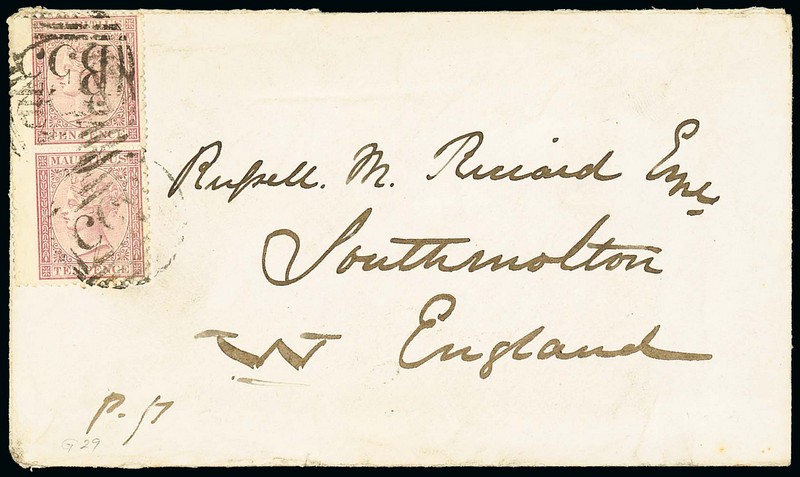 B 53
TEN PENCE
MAURITIUS
TEN PENCE
Russell. M. Riccard Esqe
Southmolton
W England
G 29